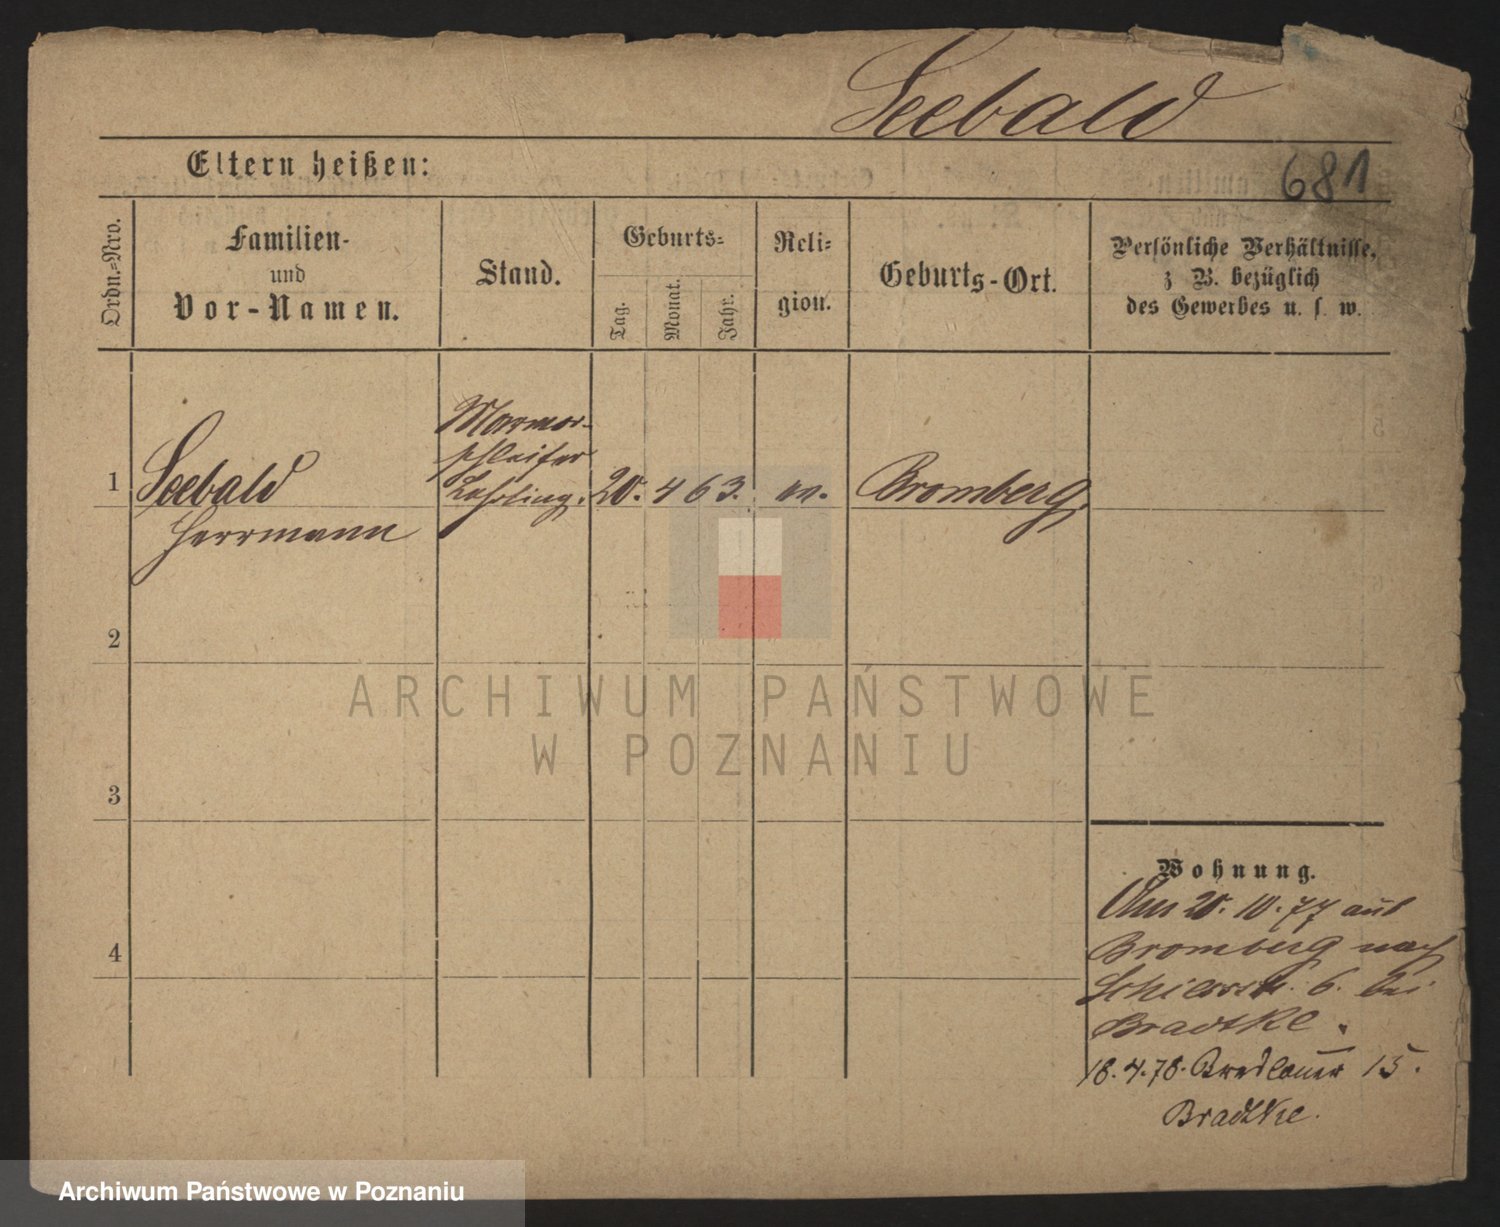 Seebald
681
Eltern heißen:
Ordn.=Nro.
Familien-
und
Vor-Namen.
Stand.
Geburts=
Tag.
Monat.
Jahr.
Reli=
gion.
Geburts-Ort.
Persönliche Verhältnisse,
z B. bezüglich
des Gewerbes u. s w.
1
Seebald
Herrmann
Marmor-
schleifer
Lehrling.
20. 4 63.
ev.
Bromberg
2
3
4
Wohnung.
Am 20. 10. 77 aus
Bromberg nach
6. bei
Bradtke.
18. 4. 78. Breslauer 15.
Bradtke.
ARCHIWUM PAŃSTWOWE
W POZNANIU
Archiwum Państwowe w Poznaniu